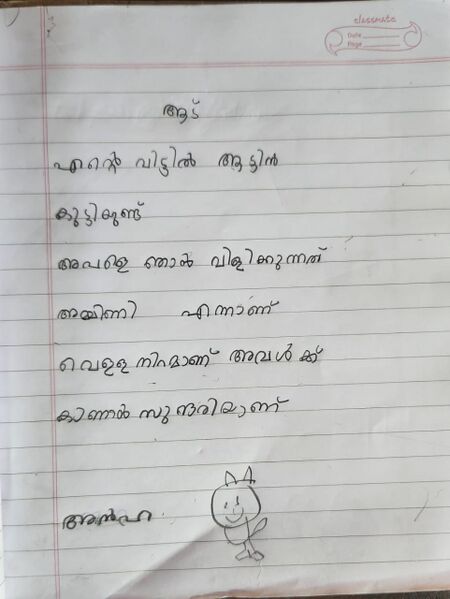 classmate
Date
Page
ആട്
എന്റെ വിട്ടിൽ ആട്ടിൻ
കുട്ടിയുണ്ട്
അപളെ ഞാൻ വിളിക്കുന്നത്
അമ്മിണി എന്നാണ്
വെള്ള നിറമാണ് അവൾ ക്ക്
കാണാൻ സുന്ദരിയാണ്
അൻഹ